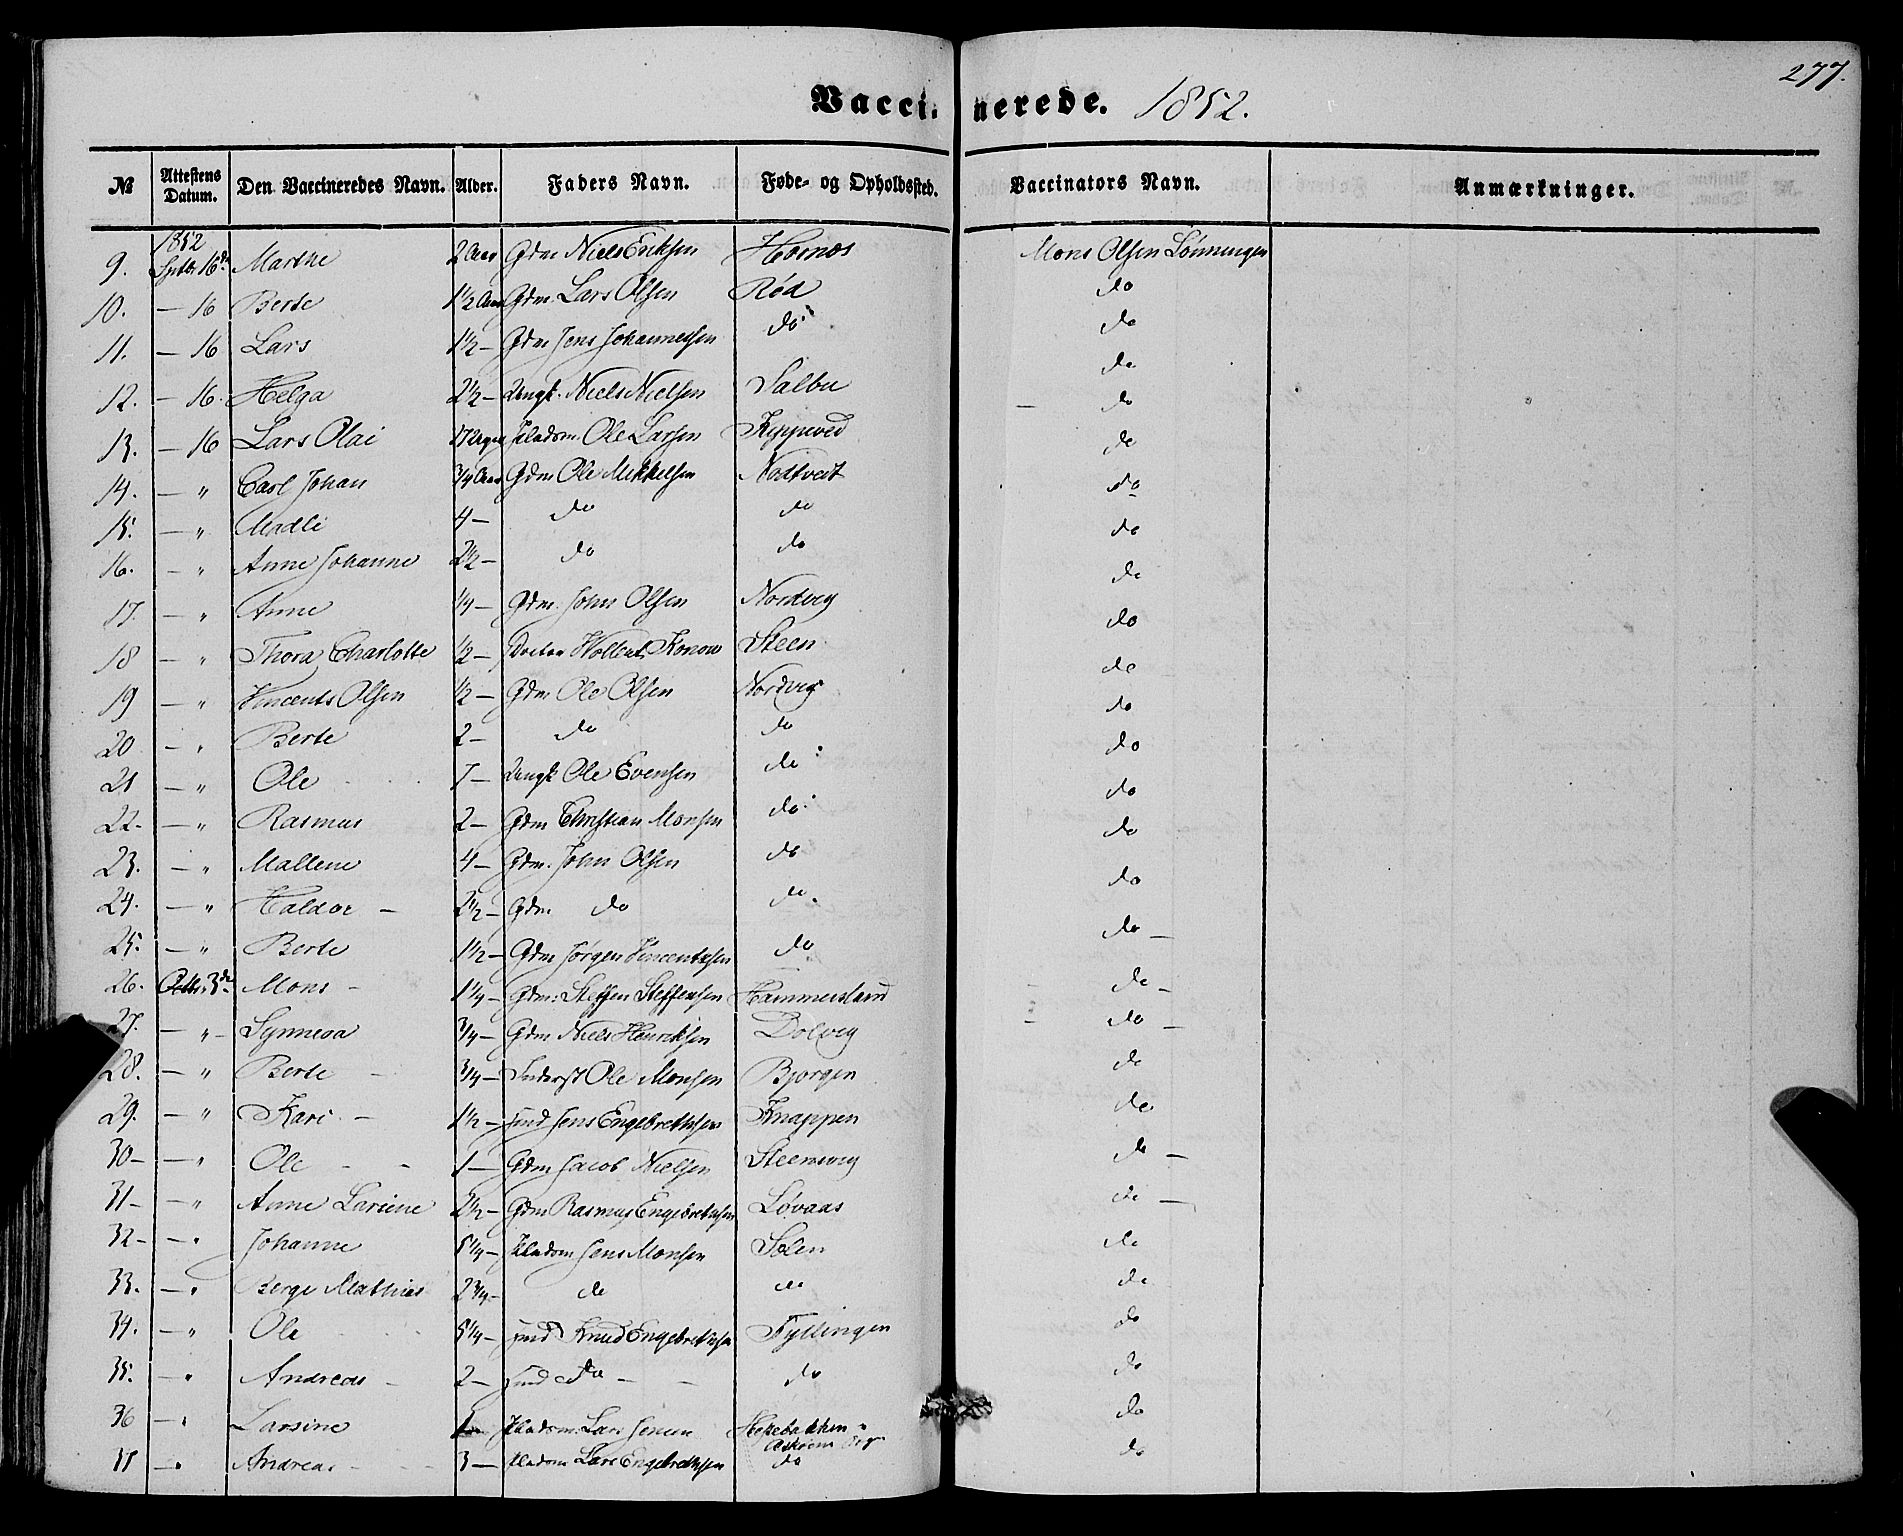 277.
Vaccinerede. 1852.
№ Attestens Datum. Den Vaccineredes Navn. Alder. Faders Navn. Føde- og Opholdssted. Vaccinators Navn. Anmærkninger.
1852
9. Septbr 16de Marthe 2 Aar Gdm Niels Eriksen Hornes Mons Olsen Lønningen
10. — 16 Berte 1½ Aar Gdm. Lars Olsen Rød do
11. — 16 Lars 1½ — Gdm Jens Johannessen do do
12. — 16. Helga 2½ — Ungk. Niels Nielsen Salbu do
13. — 16 Lars Olai Pladsm Ole Larsen do
14. — " Carl Johan ¾ Aar Gdm Ole Mikkelsen Nodtvedt do
15. — " Madli 4 — do do do
16. — " Anne Johanne 2½ — do do do
17. — " Anne ¼ — Gdm. John Olsen Nordvig do
18 — " Thora Charlotte ½ — Doctor Konow Steen do
19 — " Vincents Olsen ½ — Gdm Ole Olsen Nordvig do
20 — " Berte 2 — do do do
21 — " Ole 7 — Ungk Ole Evensen do do
22. — " Rasmus 2 — Gdm Christian Monsen do do
23. — " Mallene 4 — Gdm. John Olsen do do
24. — " Haldor — 2½ — Gdm do do do
25. — " Berte 1½ — Gdm Jørgen Vincentsen do do —
26. Octbr. 3de Mons — 1¼ — Gdm: Steffen Steffensen Hammersland do —
27. — " — Synneva ¾ — Gdm Niels Henriksen Dolvig do —
28. — " Berte — ¾ — Inderst Ole Monsen Bjorgen do
29. — " Kari — 1½ — Jens Engebrethsen Knappen do
30 — — " Ole — — 1 — Gdm Jacob Nielsen Steensvig do —
31 — — " Anne Larsine 2½ — Gdm Rasmus Engebrethsen Løvaas do —
32 — — " Johanne 5¼ — Pladsm Jens Monsen Solen do
33. — " Berge Mathias 2¾ — do do do
34. — " Ole 5¼ — Knud Engebrethsen Tyllingen do
35. — " Andreas — 2 — do — — do do
36 — " Larsine Pladsm: Lars Jensen Hessebakken do
37 — " Andreas — 3 — Pladsm Lars Engebrethsen do do